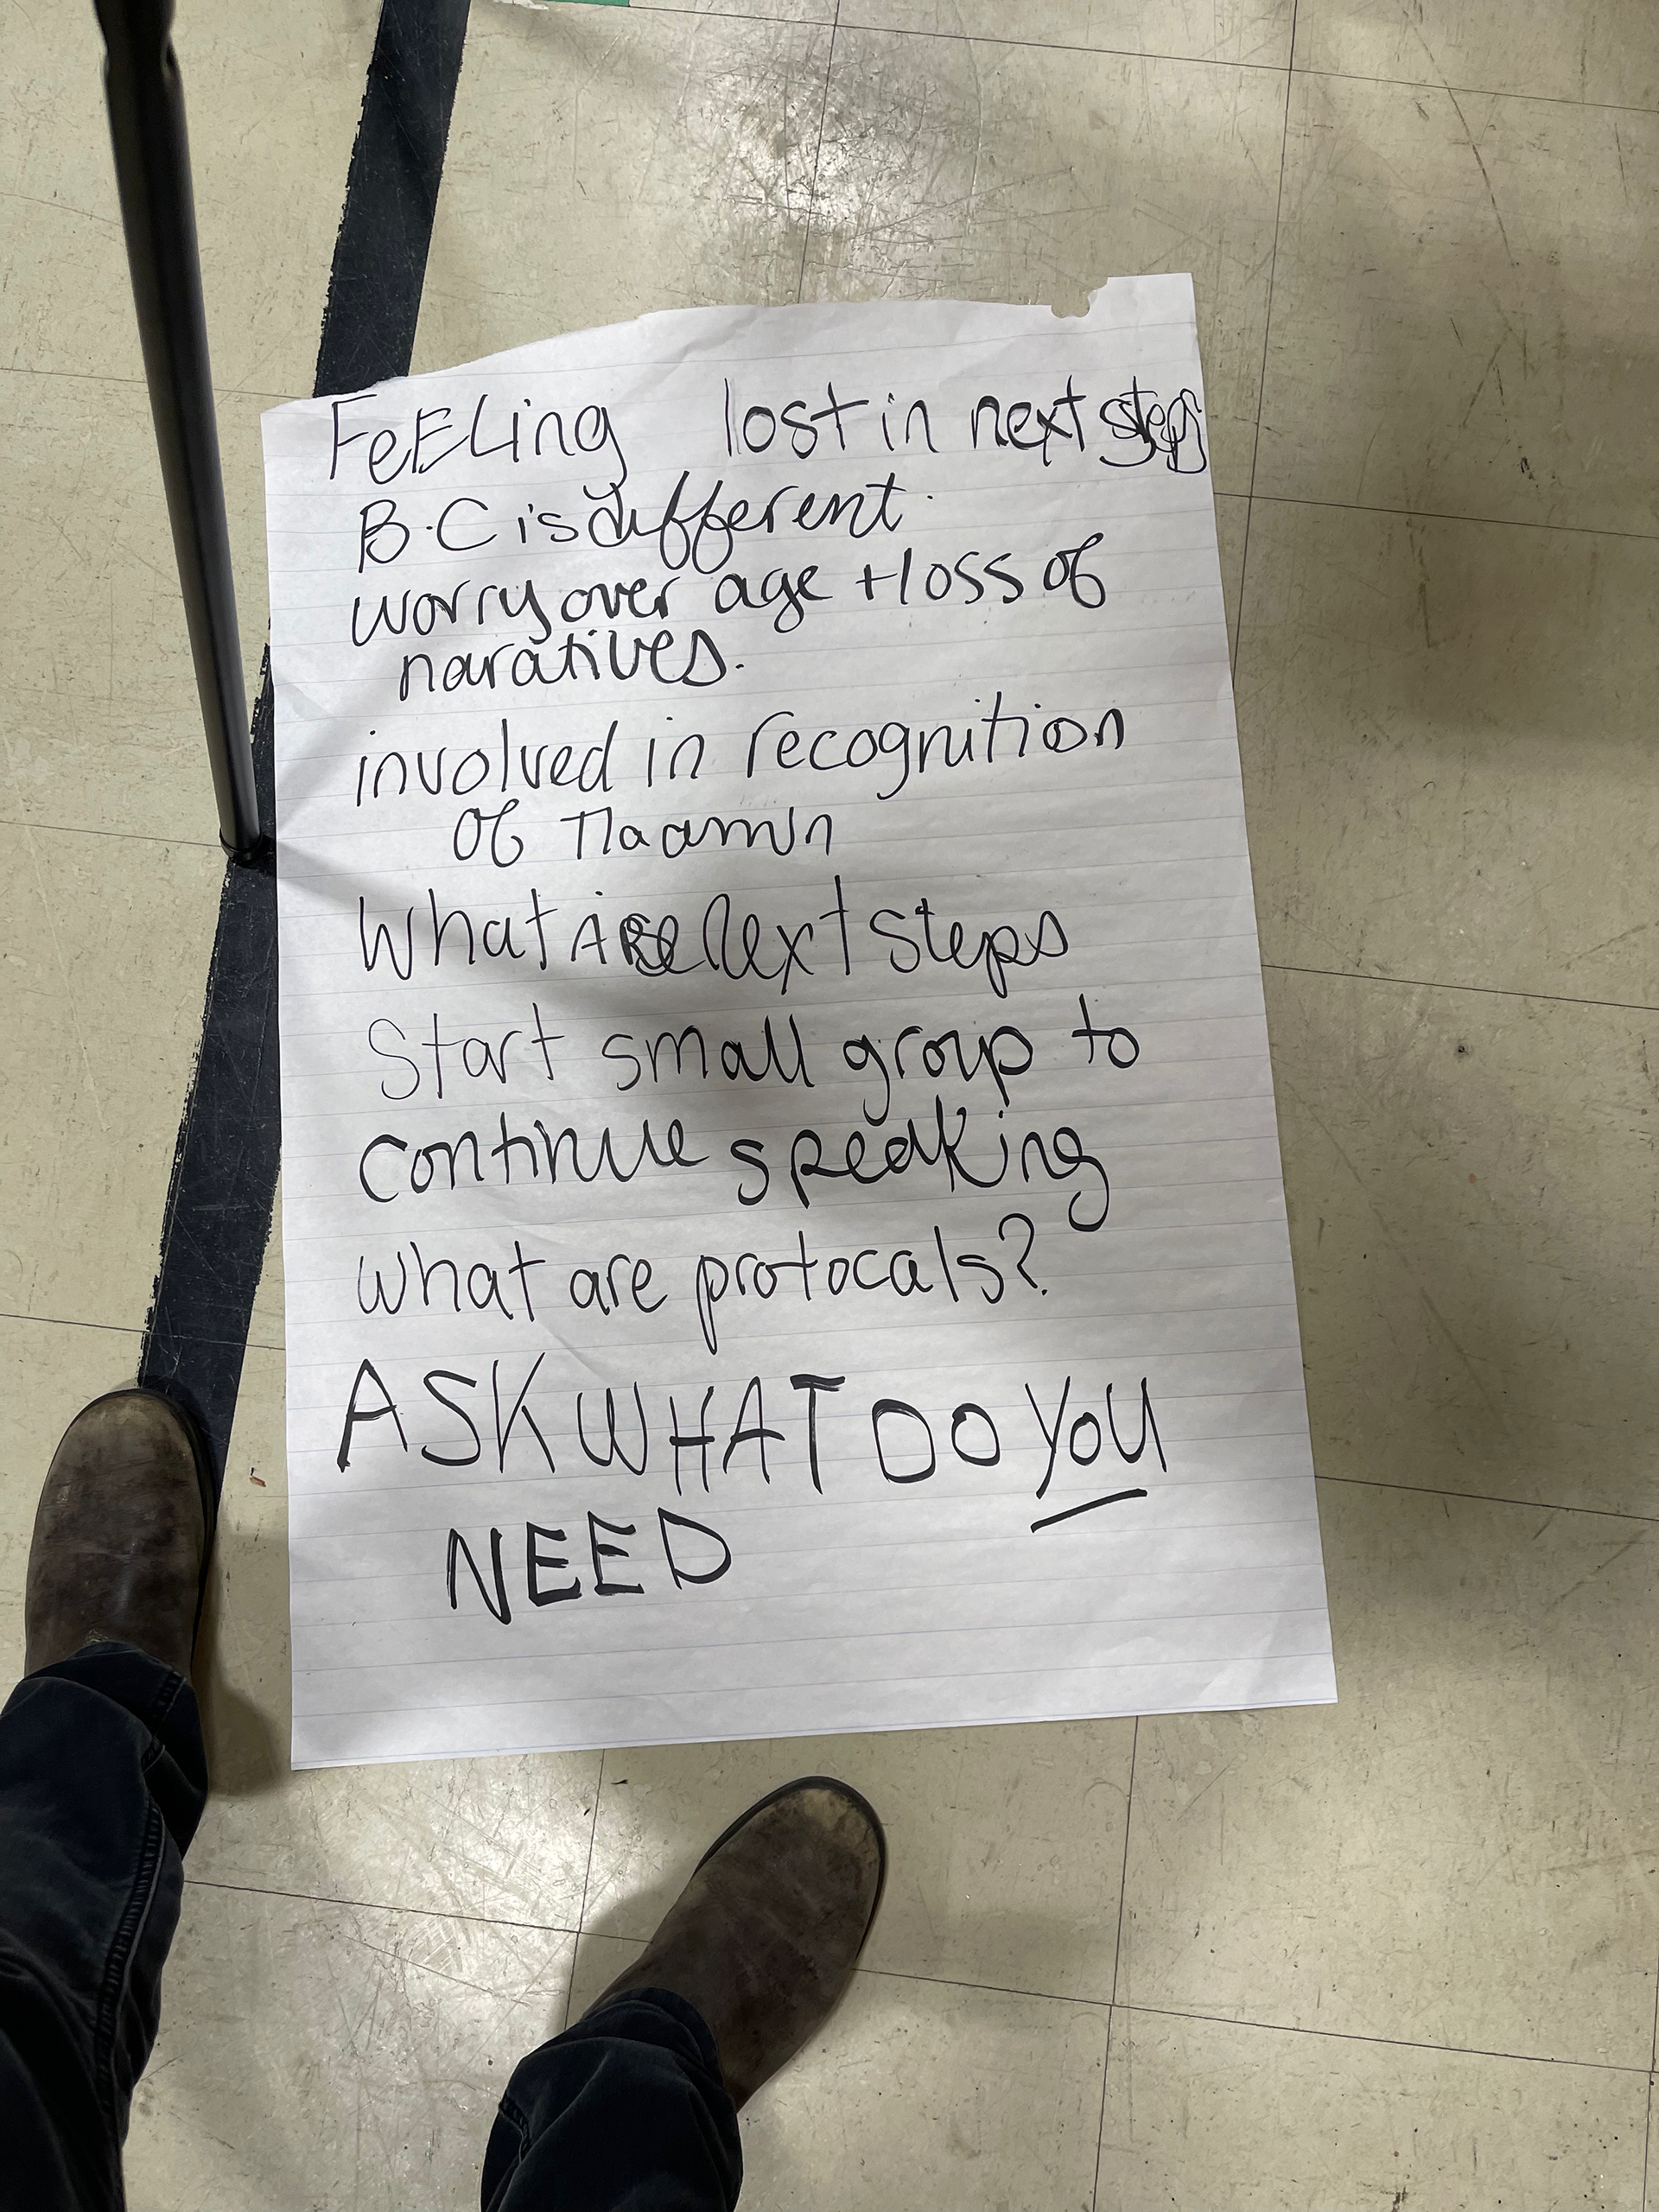 FeELing lost in next steps
B.C is different.
worry over age + loss of
naratives.
involved in recognition
of Tla amin
What ARe Next Steps
Start small group to
continue speaking
what are protocals?
ASK WHAT DO YoU
NEED